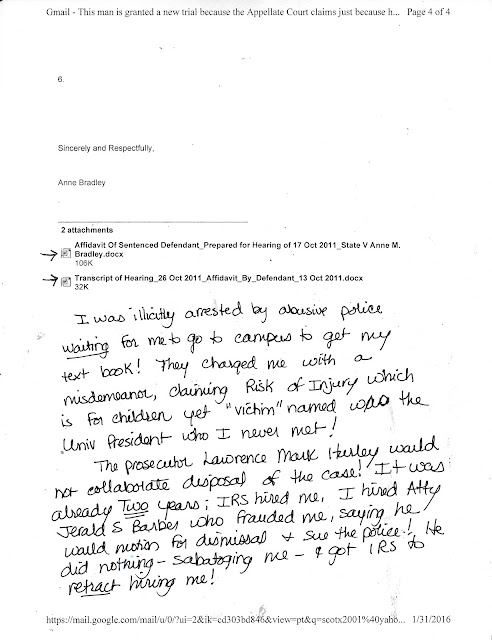 Gmail - This man is granted a new trial because the Appellate Court claims just because h... Page 4 of 4
6.
Sincerely and Respectfully,
Anne Bradley
2 attachments
Affidavit Of Sentenced Defendant_Prepared for Hearing of 17 Oct 2011_State V Anne M.
Bradley.docx
106K
Transcript of Hearing_26 Oct 2011_Affidavit_By_Defendant_13 Oct 2011.docx
32K
I was illicitly arrested by abusive police
waiting for me to go to campus to get my
text book! They charged me with a
misdemeanor, claiming Risk of Injury which
is for children yet "victim" named was the
Univ President who I never met!
The prosecutor Lawrence Mark Hurley would
not collaborate disposal of the case! It was
already Two years; IRS hired me, I hired Atty
Jerald S Barber who frauded me, saying he
would motion for dismissal & sue the police! He
did nothing - sabatoging me - & got IRS to
retract hiring me!
https://mail.google.com/mail/u/0/?ui=2&ik=cd303bd846&view=pt&q=scotx2001%40yaho... 1/31/2016